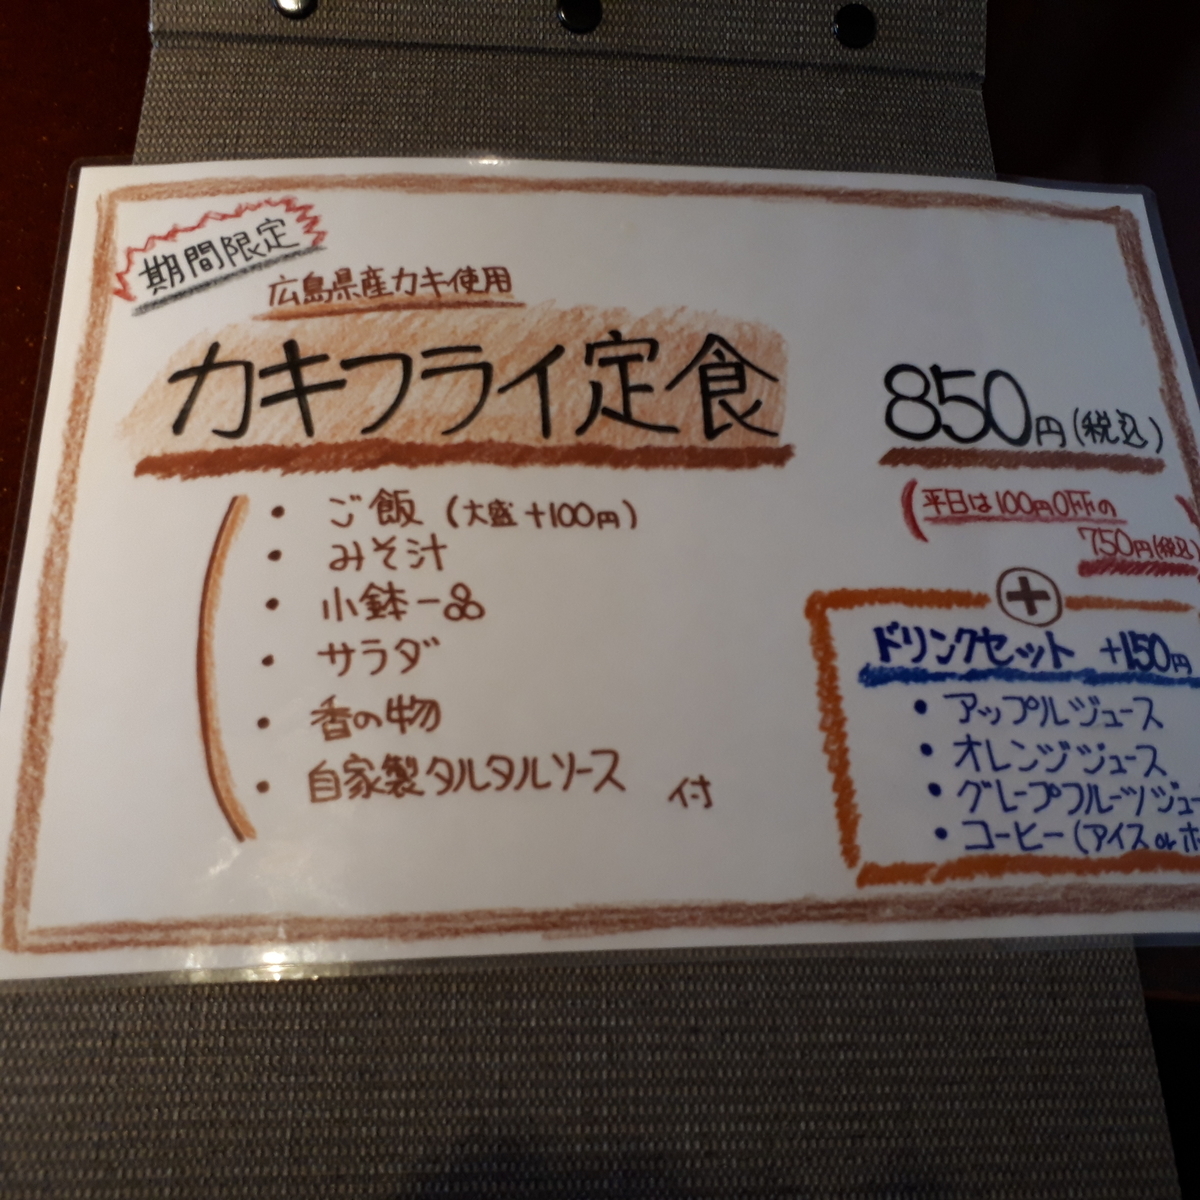 期間限定
広島県産カキ使用
カキフライ定食
850円(税込)
(平日は100円OFFの
750円(税込)
・ご飯 (大盛+100円)
・みそ汁
・小鉢一品
・サラダ
・香の物
・自家製タルタルソース 付
+
ドリンクセット +150円
・アップルジュース
・オレンジジュース
・グレープフルーツジュー
・コーヒー(アイス or ホ